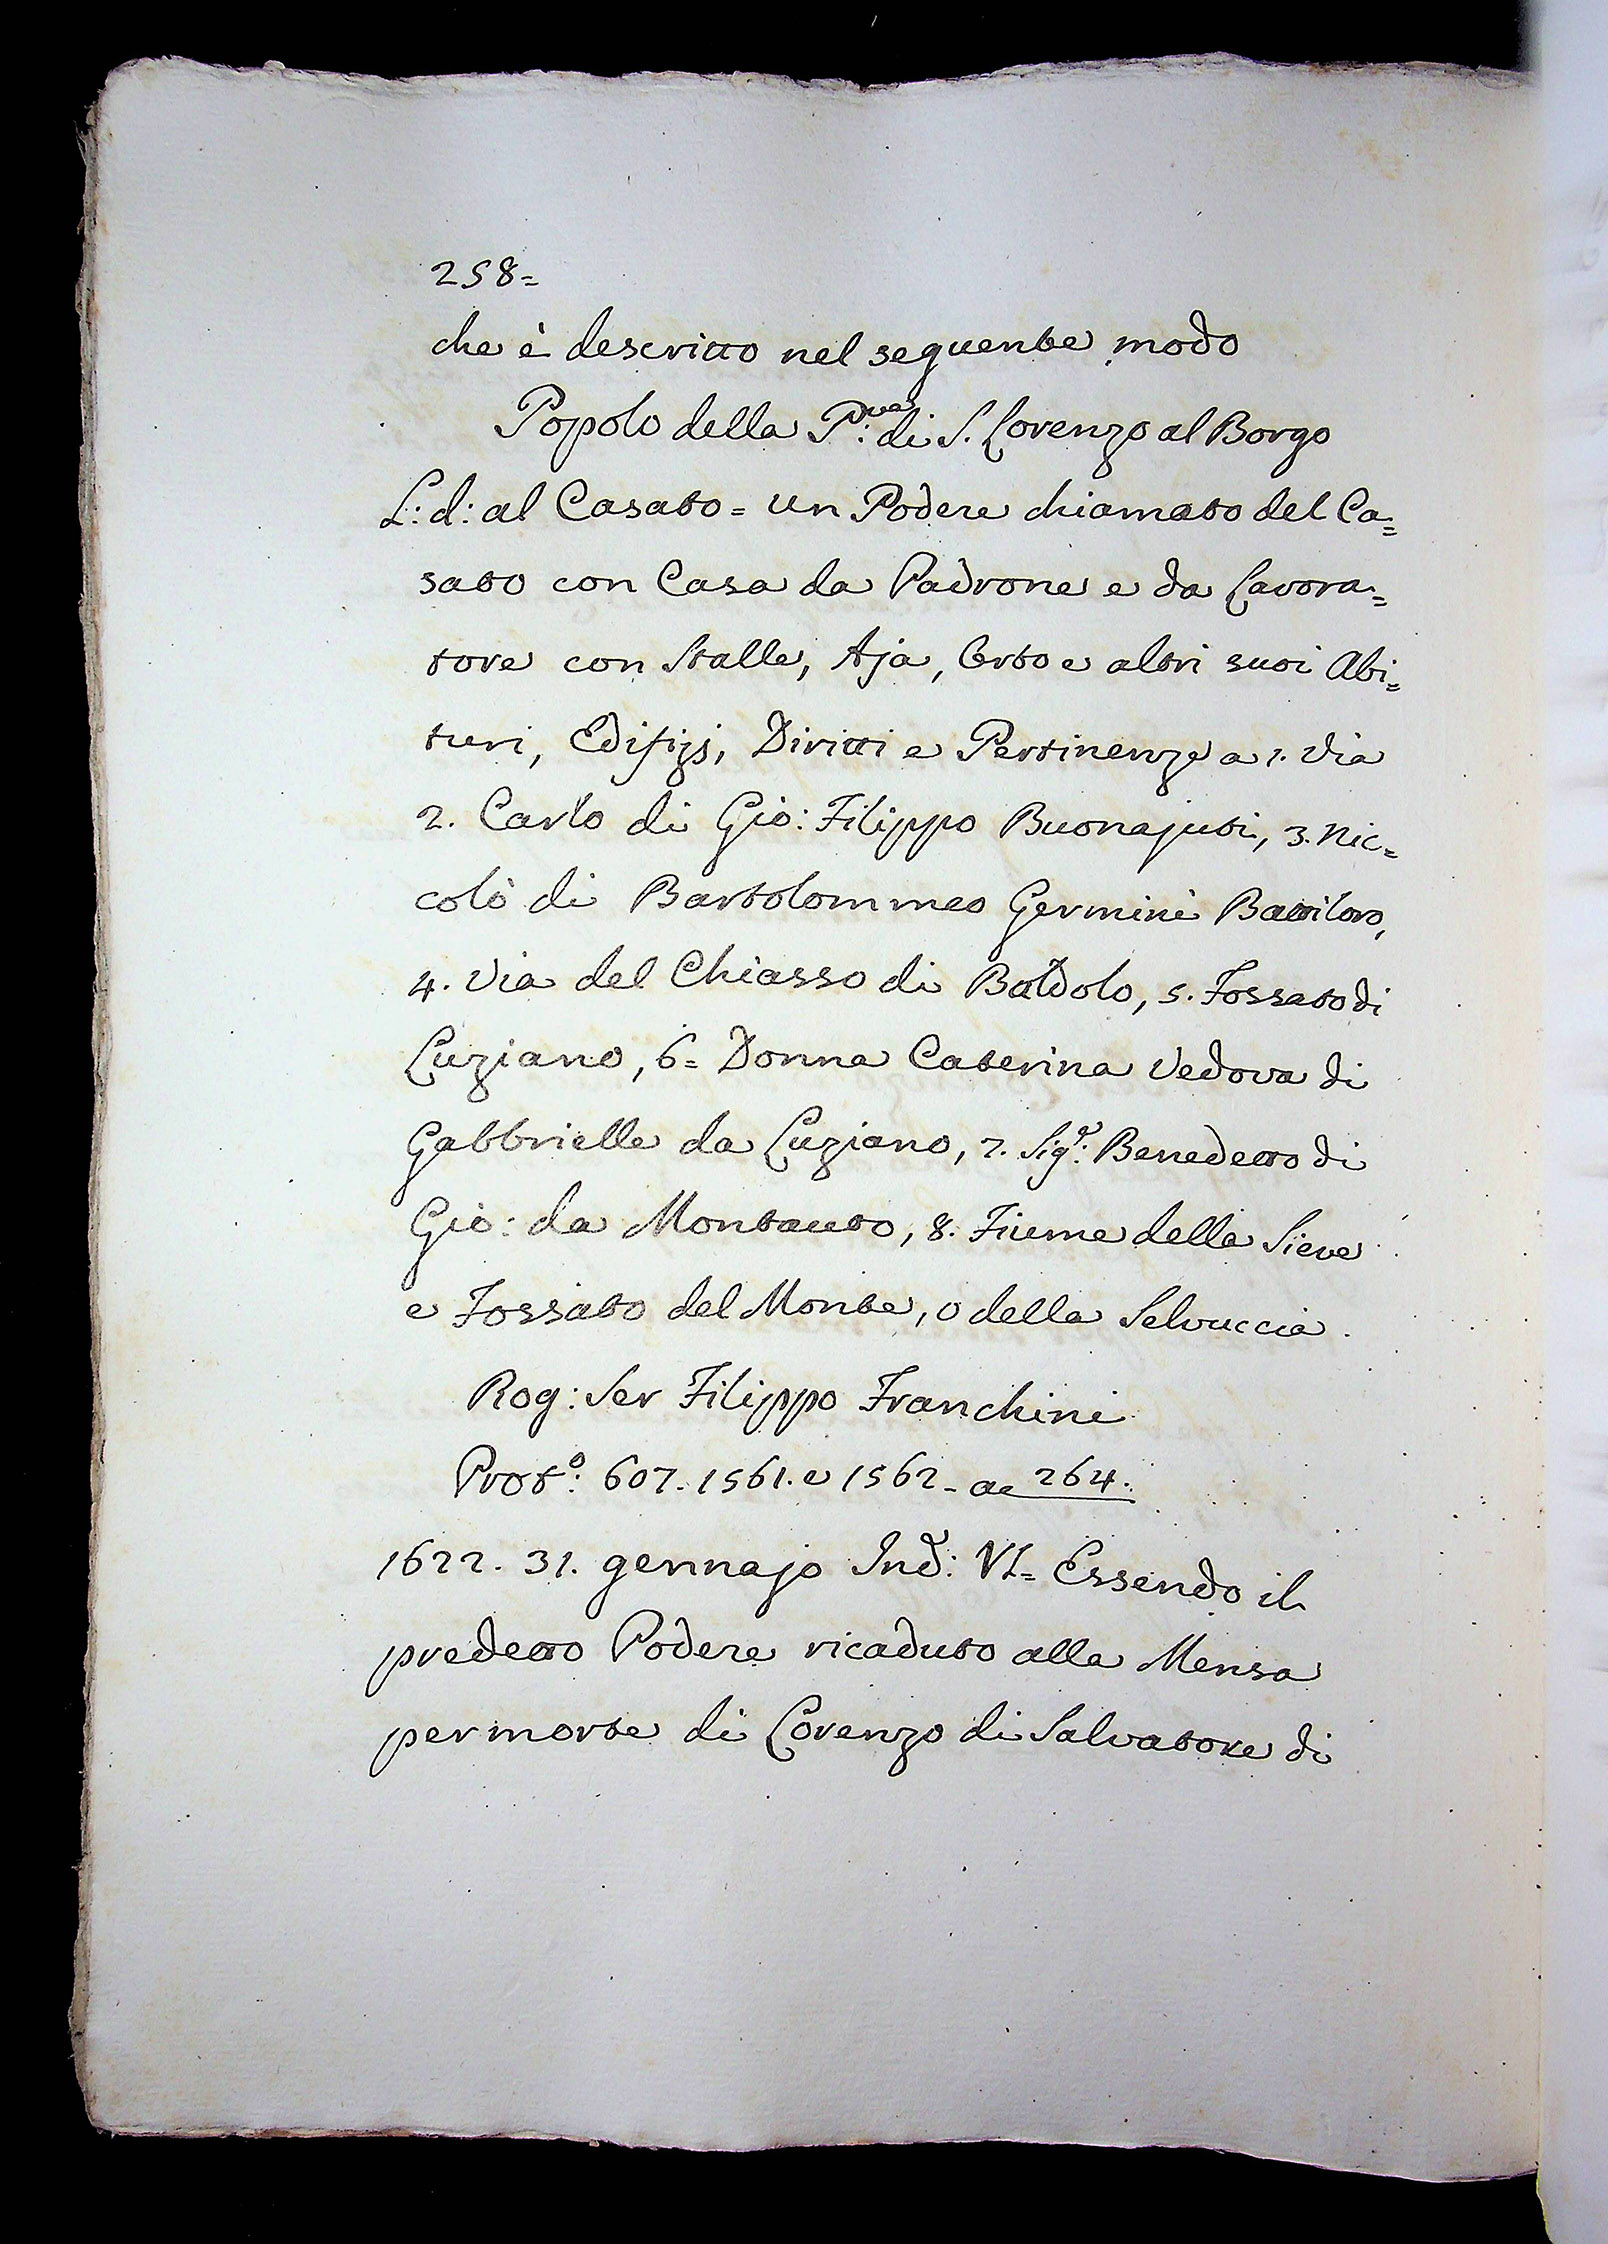 258=
che è descritto nel seguente modo
Popolo della P.va: di S. Lorenzo al Borgo
L: d: al Casato = un Podere chiamato del Ca=
sato con Casa da Padrone e da Lavora=
tore con Stalle, Aja, Orto e altri suoi Abi=
turi, Edifizj, Diritti e Pertinenze a 1. Via
2. Carlo di Gio: Filippo Buonajuti, 3. Nic=
colò di Bartolommeo Germini Battiloro,
4. Via del Chiasso di Baldolo, 5. Fossato di
Luziano, 6= Donna Caterina Vedova di
Gabbrielle da Luziano, 7. Sig.r: Benedetto di
Gio: da Montauto, 8. Fiume della Sieve
e Fossato del Monte, o della Selvuccia.
Rog: Ser Filippo Franchini
Prot.o: 607. 1561. e 1562 - a c 264.
1622. 31. gennajo Ind: VI= Essendo il
predetto Podere ricaduto alla Mensa
per morte di Lorenzo di Salvatore di